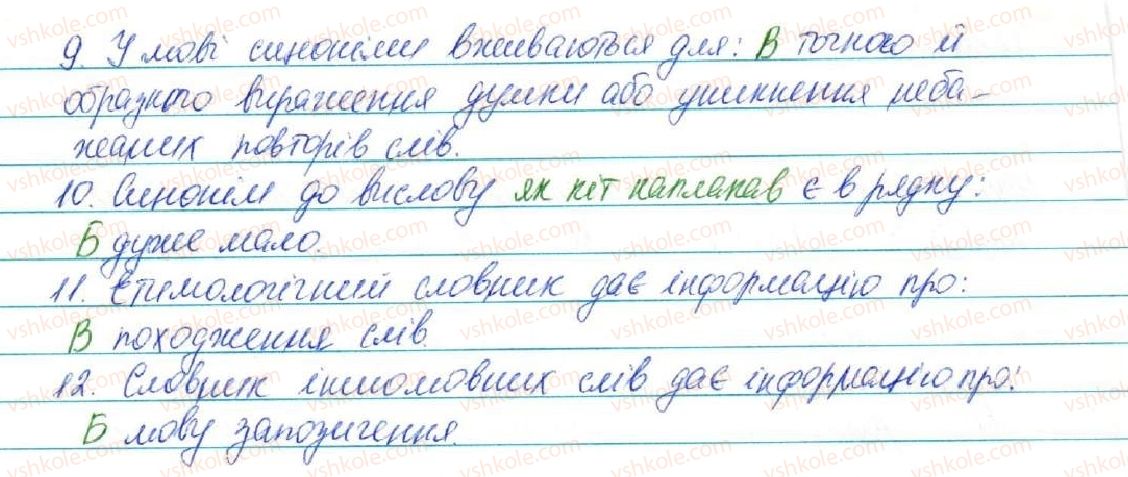 9. У мові синоніми вживаються для: В точного й
образного вираження думки або уникнення неба-
жаних повторів слів.
10. Синонім до вислову як кіт наплакав є в рядку:
Б дуже мало.
11. Етимологічний словник дає інформацію про:
В походження слів.
12. Словник іншомовних слів дає інформацію про:
Б мову запозичення.